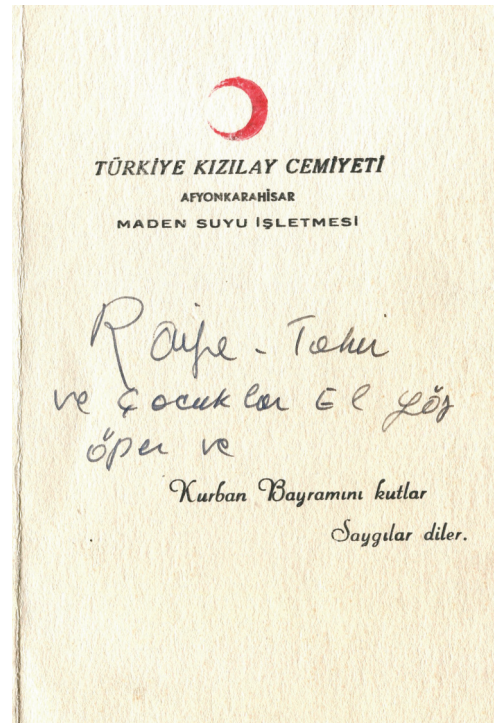 TÜRKİYE KIZILAY CEMİYETİ
AFYONKARAHİSAR
MADEN SUYU İŞLETMESİ
Raife - Tahir
ve çocuklar El göz
öper ve
Kurban Bayramını kutlar
Saygılar diler.